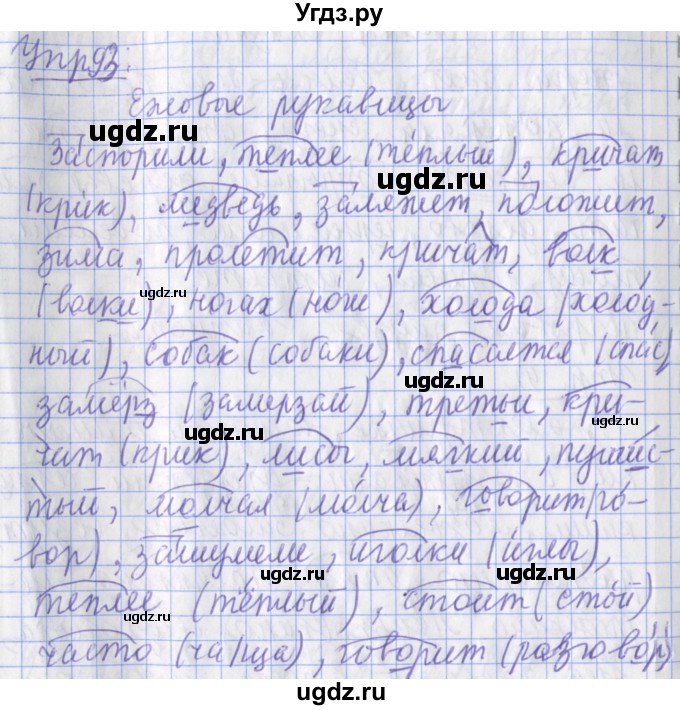 Угдз.ру
Упр93.
Ежовые рукавицы
ugdz.ru
Заспорили, теплее (тёплый), кричат
ugdz.ru
(крик), медведь, заляжет, положит,
зима, пролетит, кричат, волк
ugdz.ru
(волки), ногах (нож), холода (холод-
ugdz.ru
ный), собак (собаки), спасается (спас)
ugdz.ru
замёрз (замерзай), третьи, кри-
ugdz.ru
ugdz.ru
чат (крик), лисы, мягкий, пушис-
тый, молчал (молча), говорит (го-
ugdz.ru
вор), зашумели, иголки (иглы),
ugdz.ru
ugdz.ru
теплее (тёплый), стоит (стой)
часто (ча/ща), говорит (разговор)
ugdz.ru